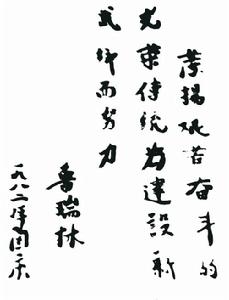 发扬艰苦奋斗的
光荣传统为建設新
武乡而努力
鲁瑞林
一九八二年国庆